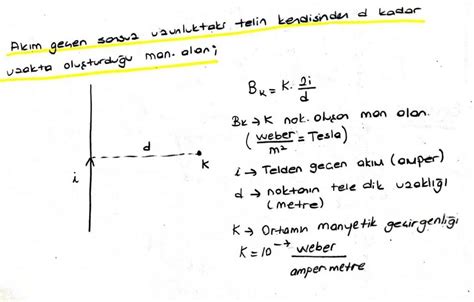 Akım geçen sonsuz uzunluktaki telin kendisinden d kadar
uzakta oluşturduğu man. alan;
B_K = K. 2i/d
B_K → K nok. oluşan man alan.
(weber/m² = Tesla)
i → Telden geçen akım (amper)
d → noktanın tele dik uzaklığı
(metre)
K → Ortamın manyetik geçirgenliği
K = 10⁻⁷ weber/amper metre
i
d
K